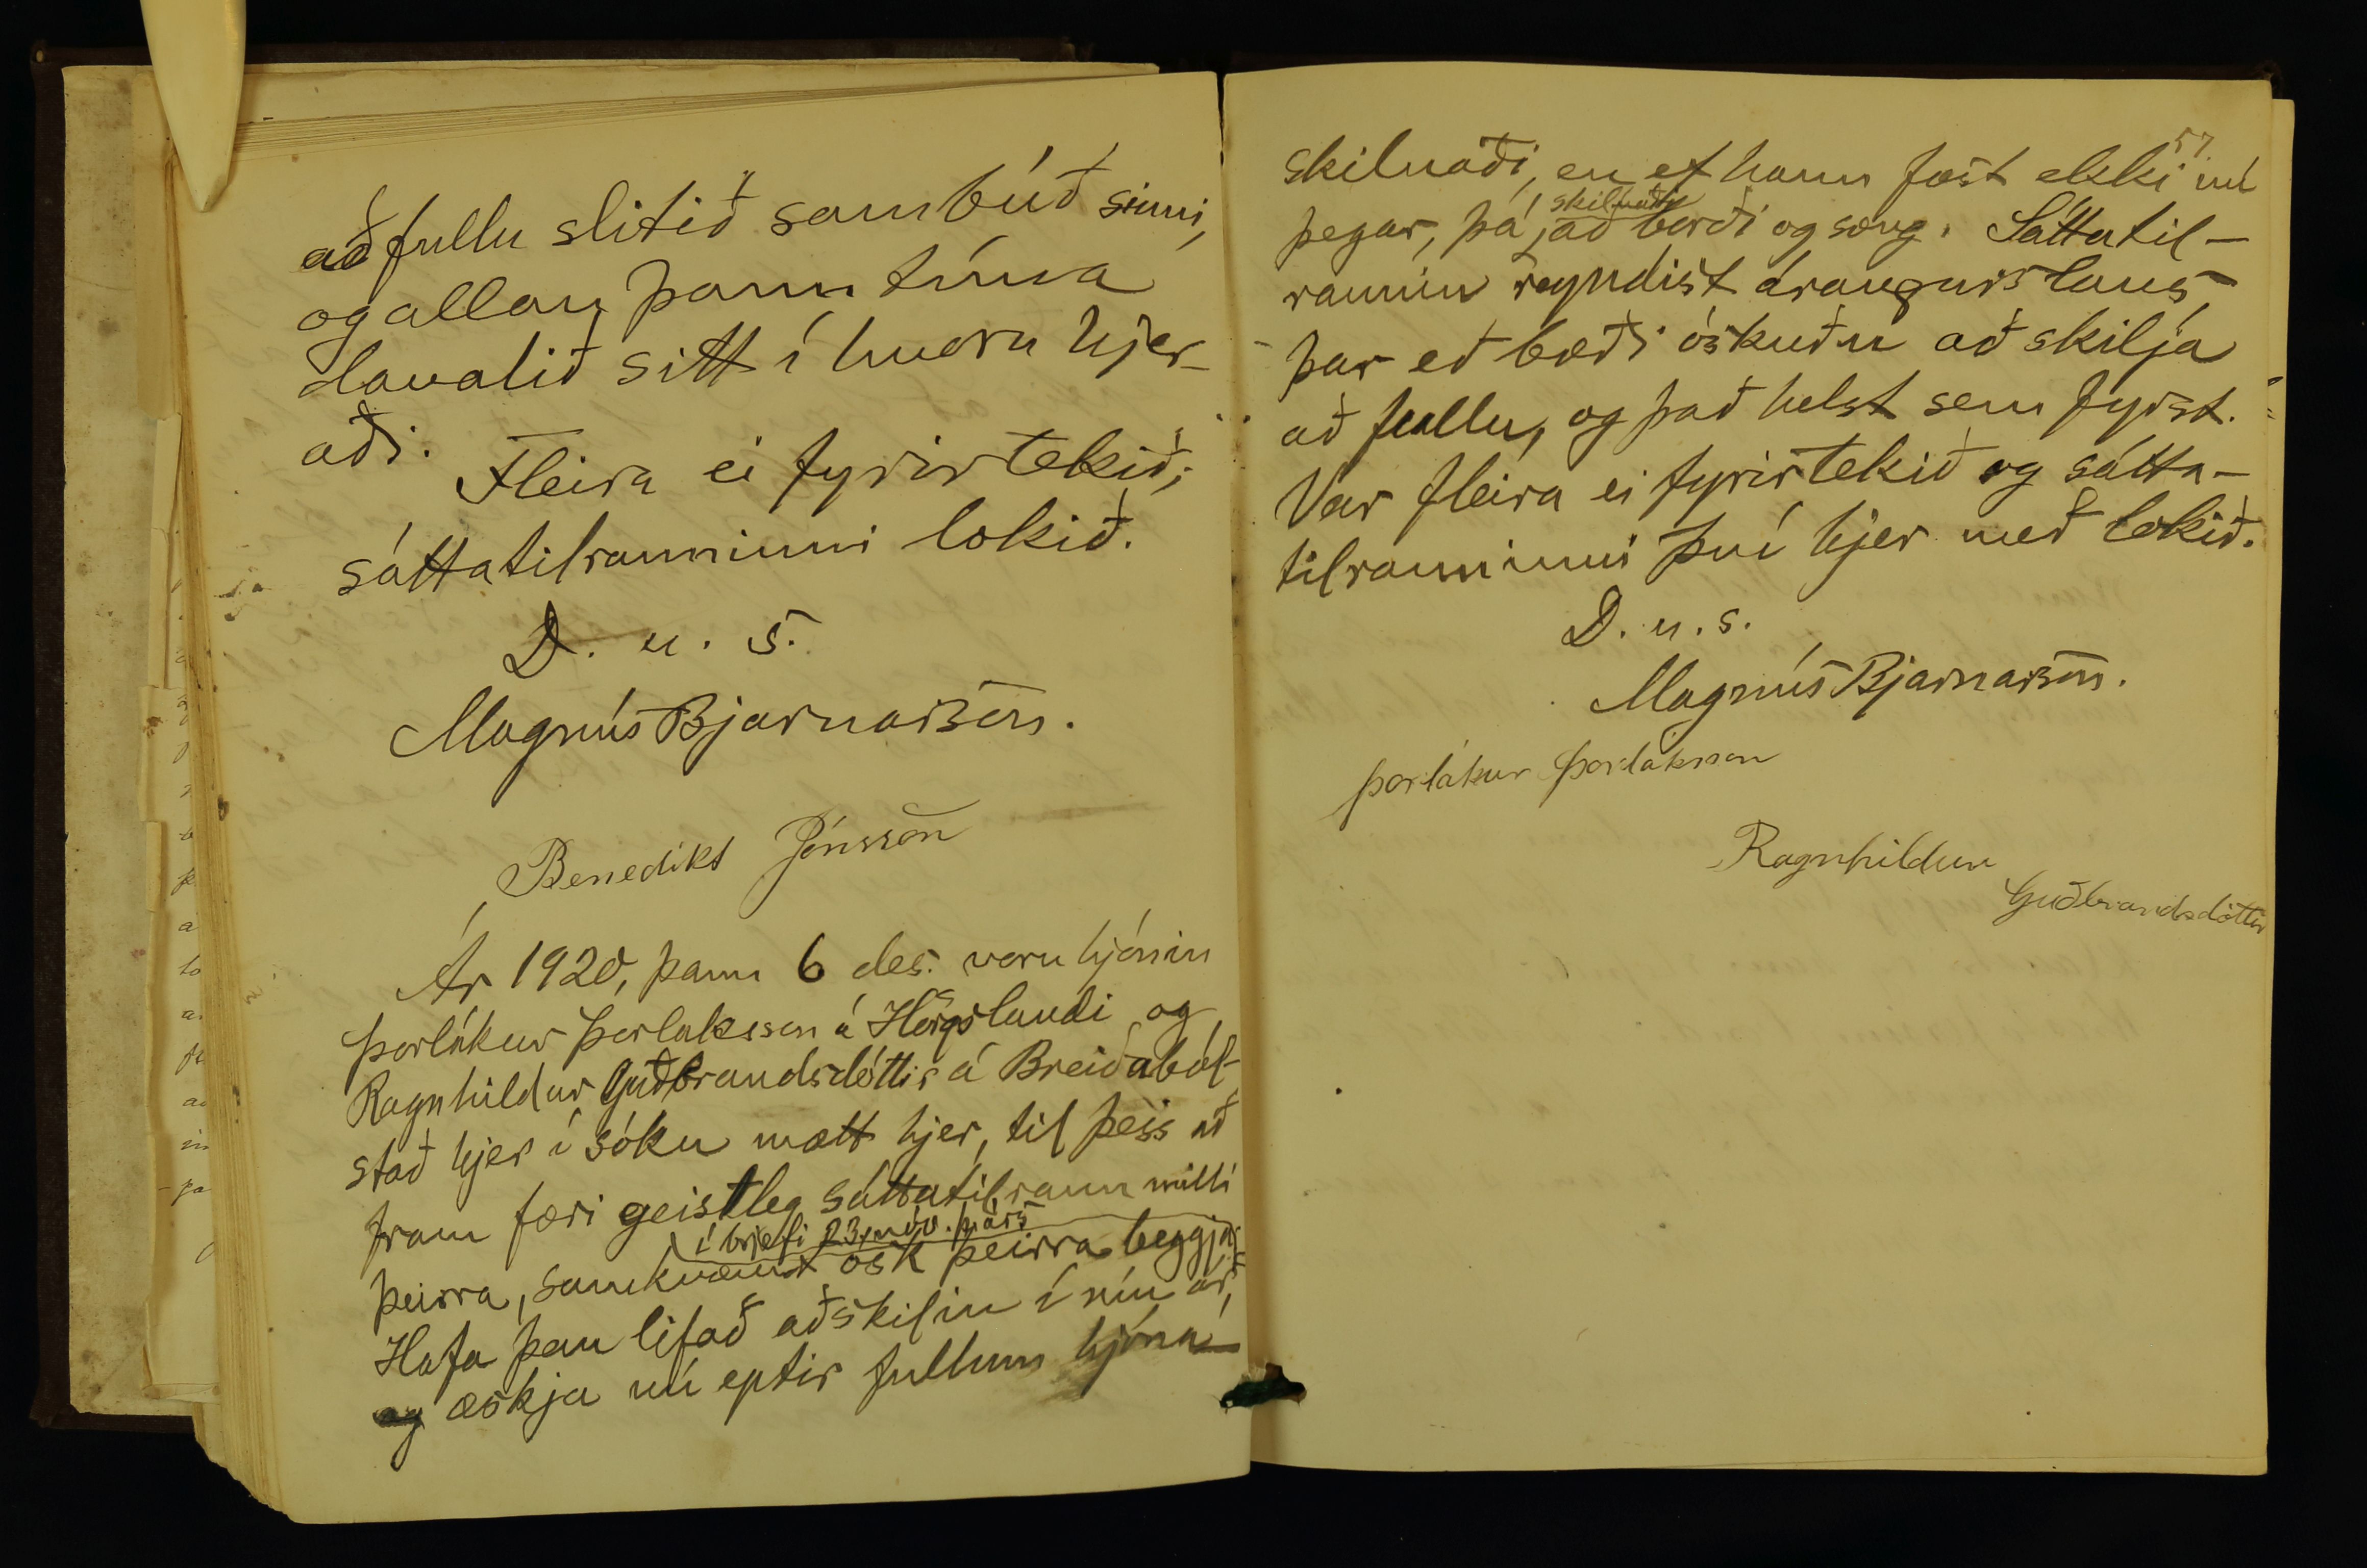 að fullu slitið sambúð sinni,
og allan þann tíma
davalið sitt í hvoru hjer-
aði.
Fleira ei fyrirtekið;
sáttatilrauninni lokið.
D. u. s.
Magnús Bjarnarson.
Benedikt Jónsson
Ár 1920, þann 6 des. voru hjónin
Þorlákur Þorláksson á Hörgslandi og
Ragnhildur Guðbrandsdóttir á Breiðaból-
stað hjer í sókn mætt hjer, til þess að
fram færi geistleg sáttatilraun milli
í brjefi 23. nóv. þ. árs
þeirra, samkvæmt ósk þeirra beggja
Hafa þau lifað aðskilin í níu ár,
og æskja nú eptir fullum hjóna-
57
skilnaði, en ef hann fæst ekki nú
skilnaði
þegar, þá að borði og sæng. Sáttatil-
raunin reyndist árangurslaus,
þar eð bæði óskuðu að skilja
að fullu, og það helst sem fyrst.
Var fleira ei fyrirtekið og sátta-
tilrauninni því hjer með lokið.
D. u. s.
Magnús Bjarnarson.
Þorlákur Þorláksson
Ragnhildur
Guðbrandsdóttir